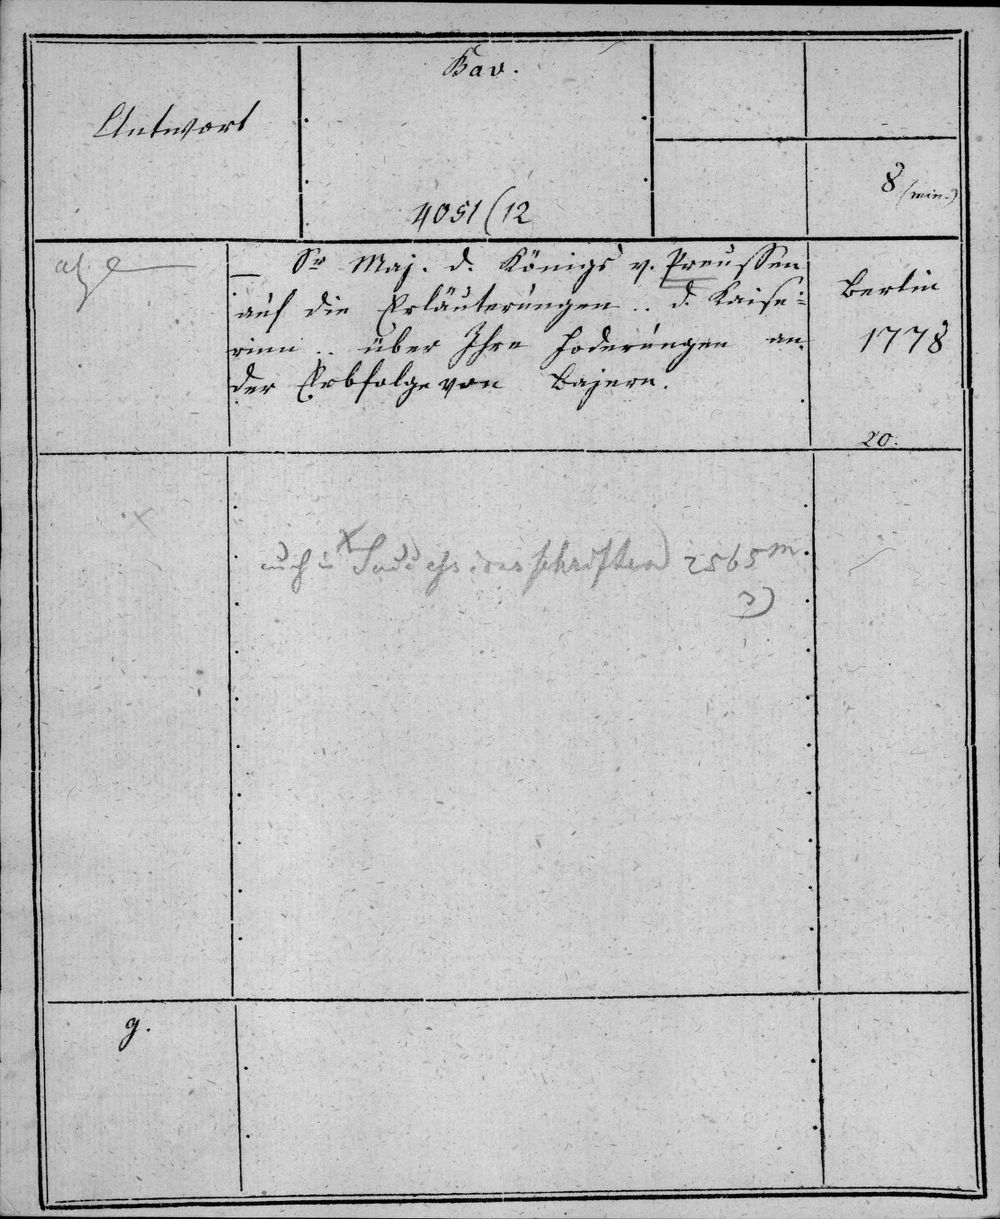 Bav.
Antwort
8 (min.)
4051 (12
— Sr Maj. d. Königs v. Preussen
auf die Erläuterungen .. d. Kaise-
rinn .. über Ihre Foderungen an
der Erbfolge von Bajern.
Berlin
1778
20.
x
schriften 2565 m
2)
g.